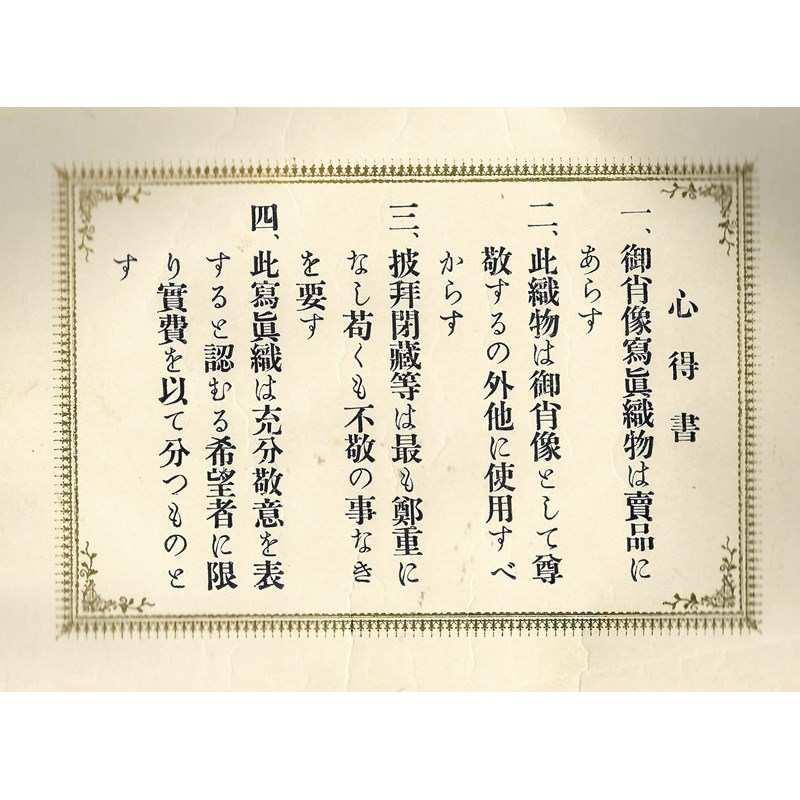 心得書
一、御肖像寫眞織物は賣品に
あらす
二、此織物は御肖像として尊
敬するの外他に使用すべ
からす
三、披拜閉藏等は最も鄭重に
なし苟くも不敬の事なき
を要す
四、此寫眞織は充分敬意を表
すると認むる希望者に限
り實費を以て分つものと
す